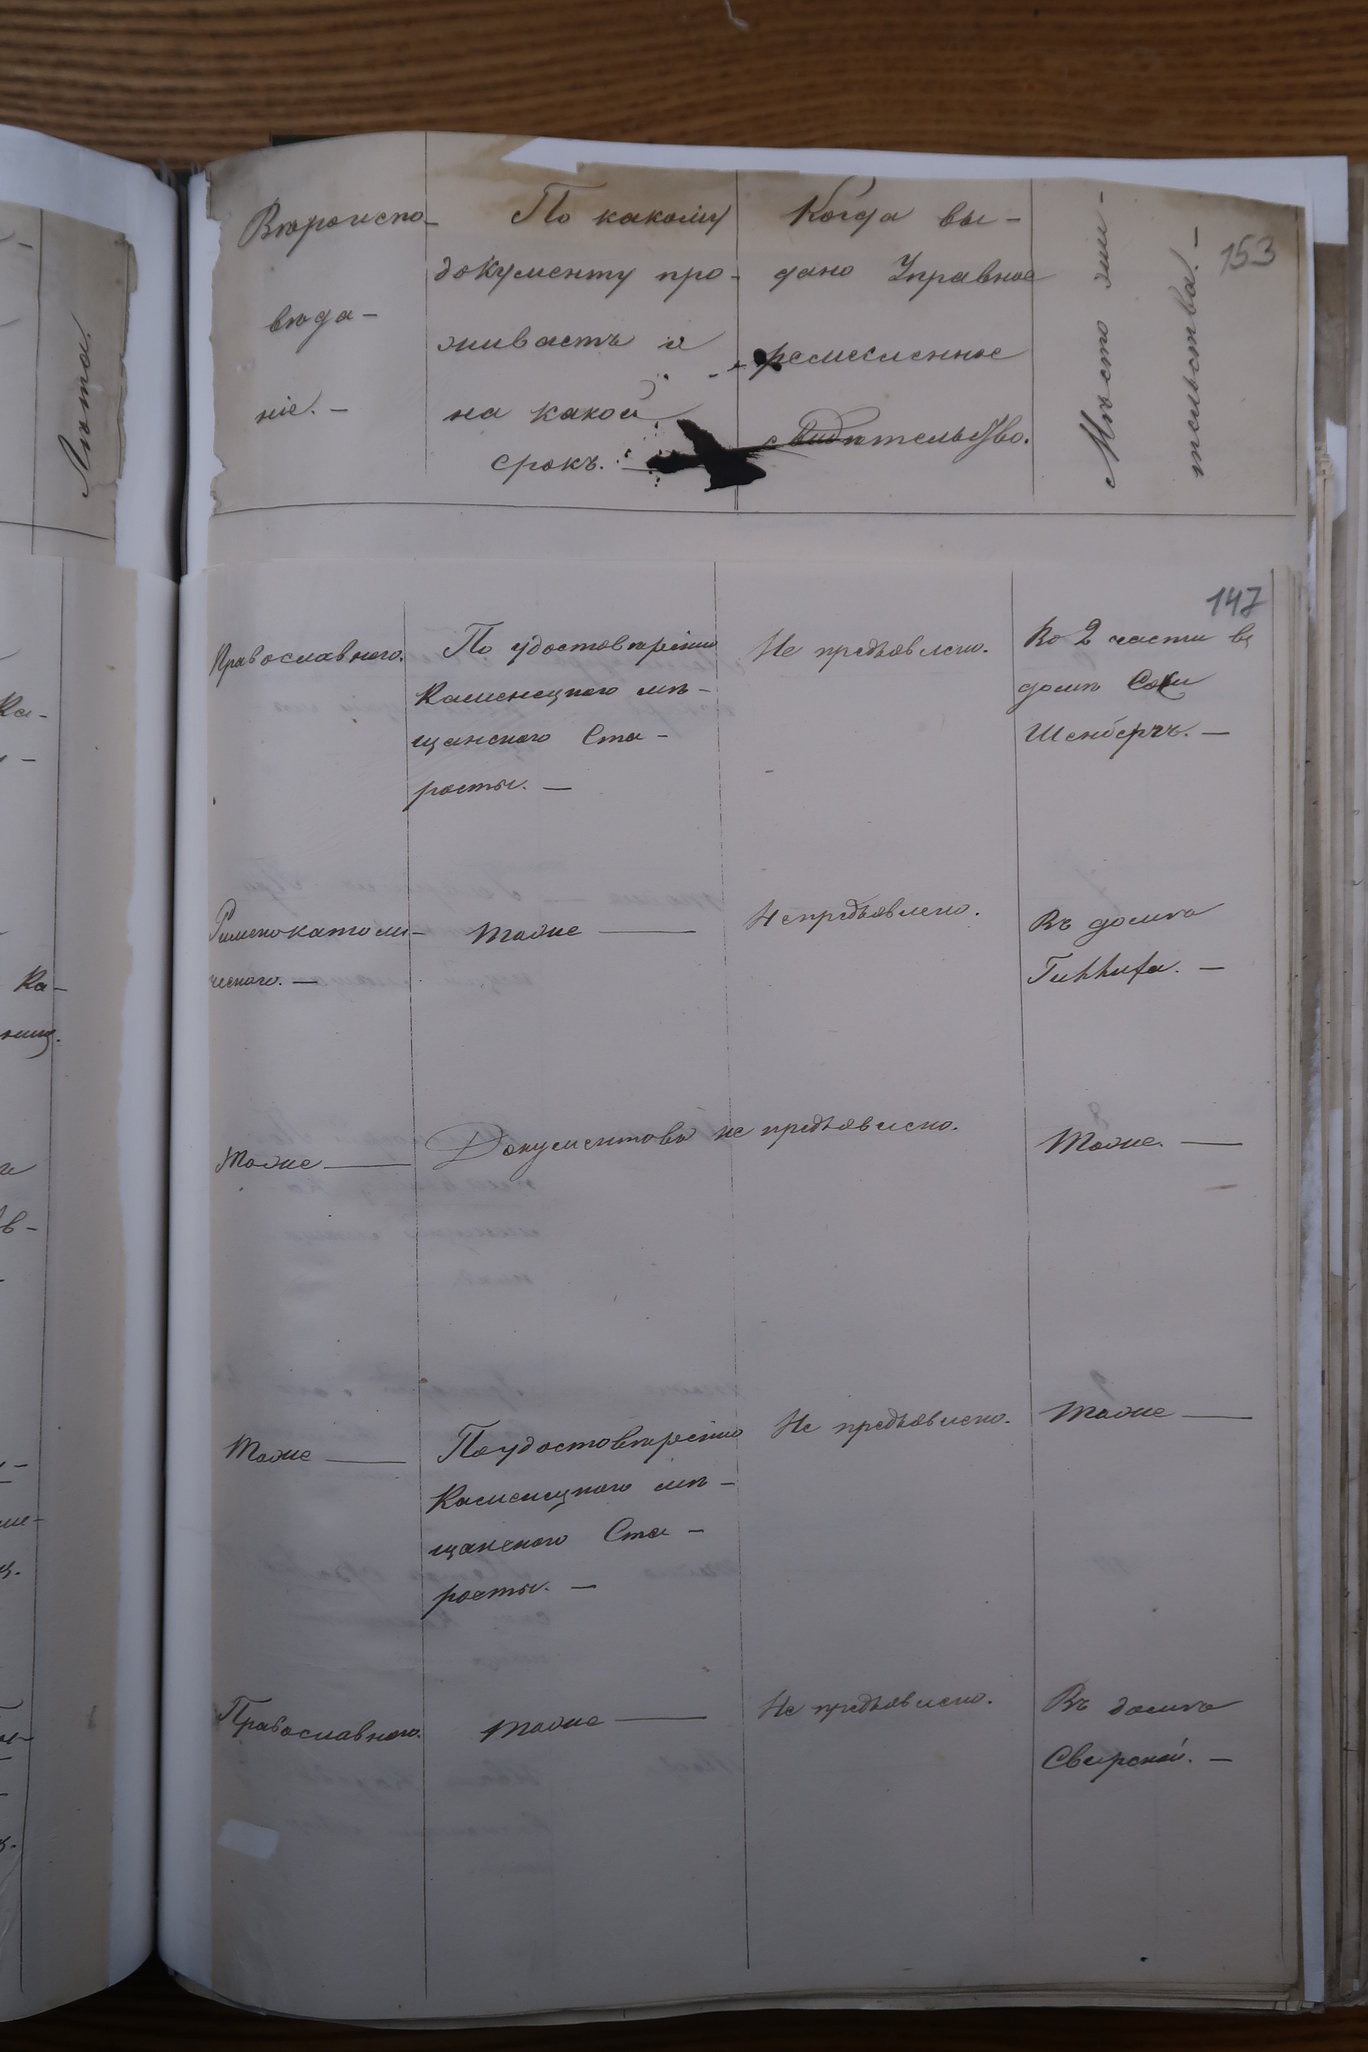 Лѣта.
153
Вѣроиспо-
вѣда-
ніе. -
По какому
документу про-
живаетъ и
на какой
срокъ. -
Когда вы-
дано Управною
ремесленное
свидѣтельство.
Мѣсто жи-
тельства. -
147
Православнаго.
По удостовѣренію
Каменецкаго мѣ-
щанскаго Ста-
росты. -
Не предъявлено.
Во 2 части въ
домѣ
Шенберъ. -
Римскокатоли-
ческаго. -
Тоже
Не предъявлено.
Въ домѣ
Тоже
Документовъ не предъявлено.
Тоже.
Тоже
По удостовѣренію
Каменецкаго мѣ-
щанскаго Ста-
росты. -
Не предъявлено.
Тоже
Православнаго.
Тоже
Не предъявлено.
Въ домѣ
Свирской. -
Ка-
Ка-